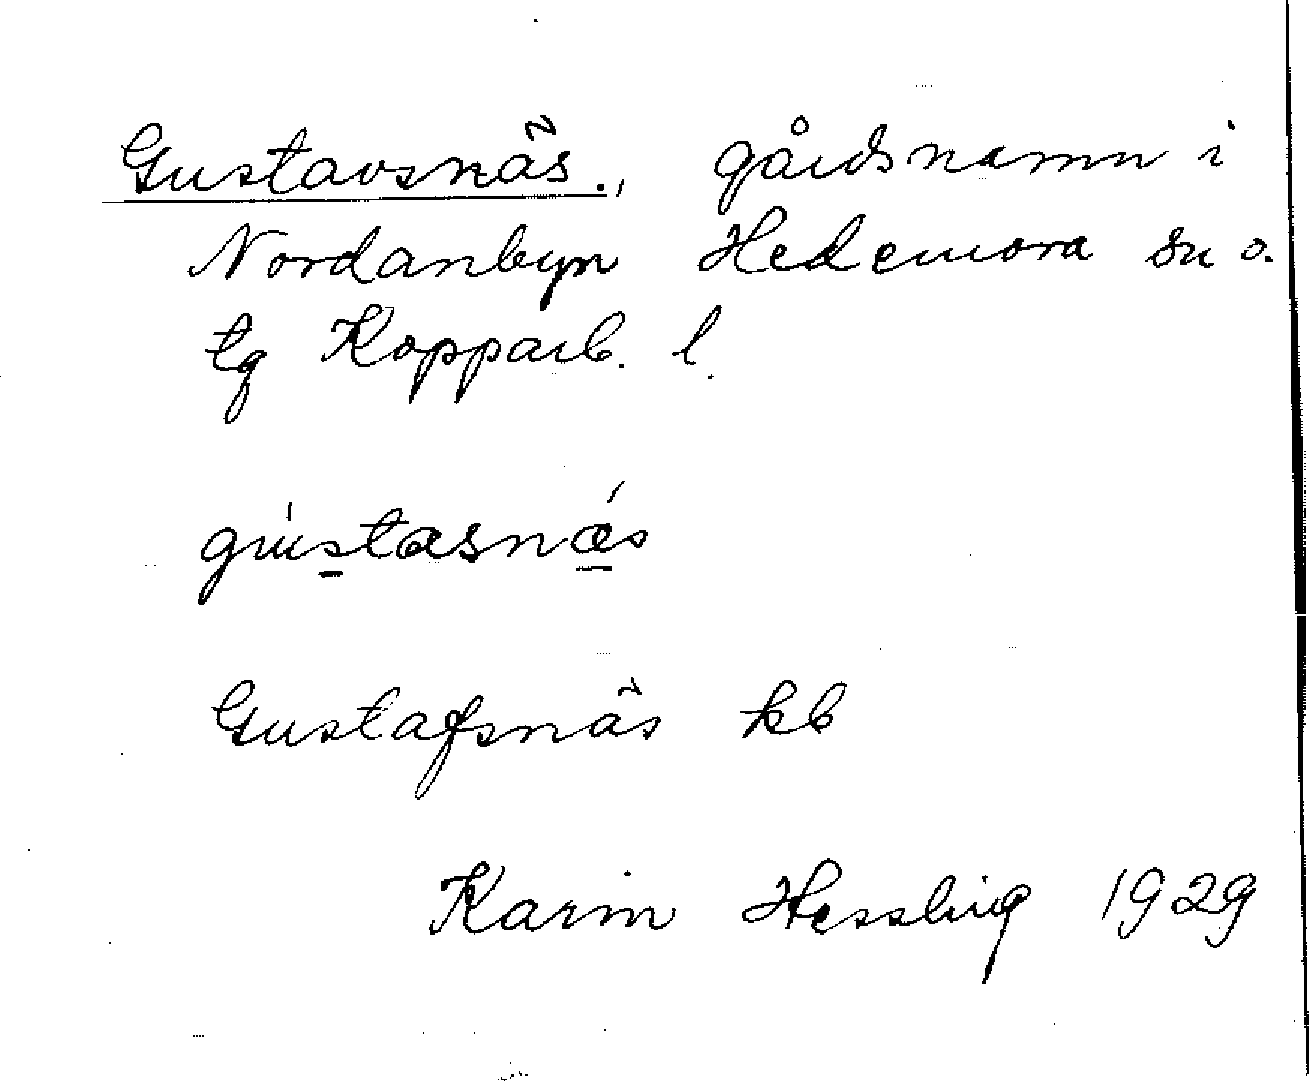 Gustavsnäs., gårdsnamn i
Nordanbyn Hedemora sn o.
tg Kopparb. l.
gústasnǽs
Gustafsnäs kb
Karin Hessling 1929